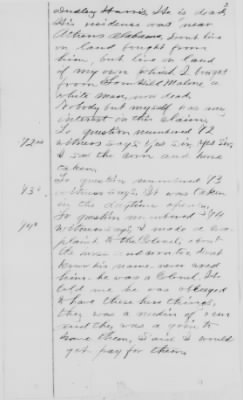 Dudley Harris, He is dead
His residence was near
Athens Alabama, I now live
on land bought from
him, but live on land
of my own which I bought
from Malone, a
white man, now dead.
Nobody but myself has any
interest in this claim,
To question numbered 42
42nd witness says: Yes sir, yes sir,
I saw the corn and
taken,
To question numbered 43
43d witness says: It was taken
in the daytime openly,
To question numbered 44
44th witness says; I made a com-
plaint to the Colonel, about
the and don't
know his name now
him. he was a Colonel, He
told me he was obliged
to have these things,
they was a needin of 
and they was a goin to
have them, I said I would
get pay for them